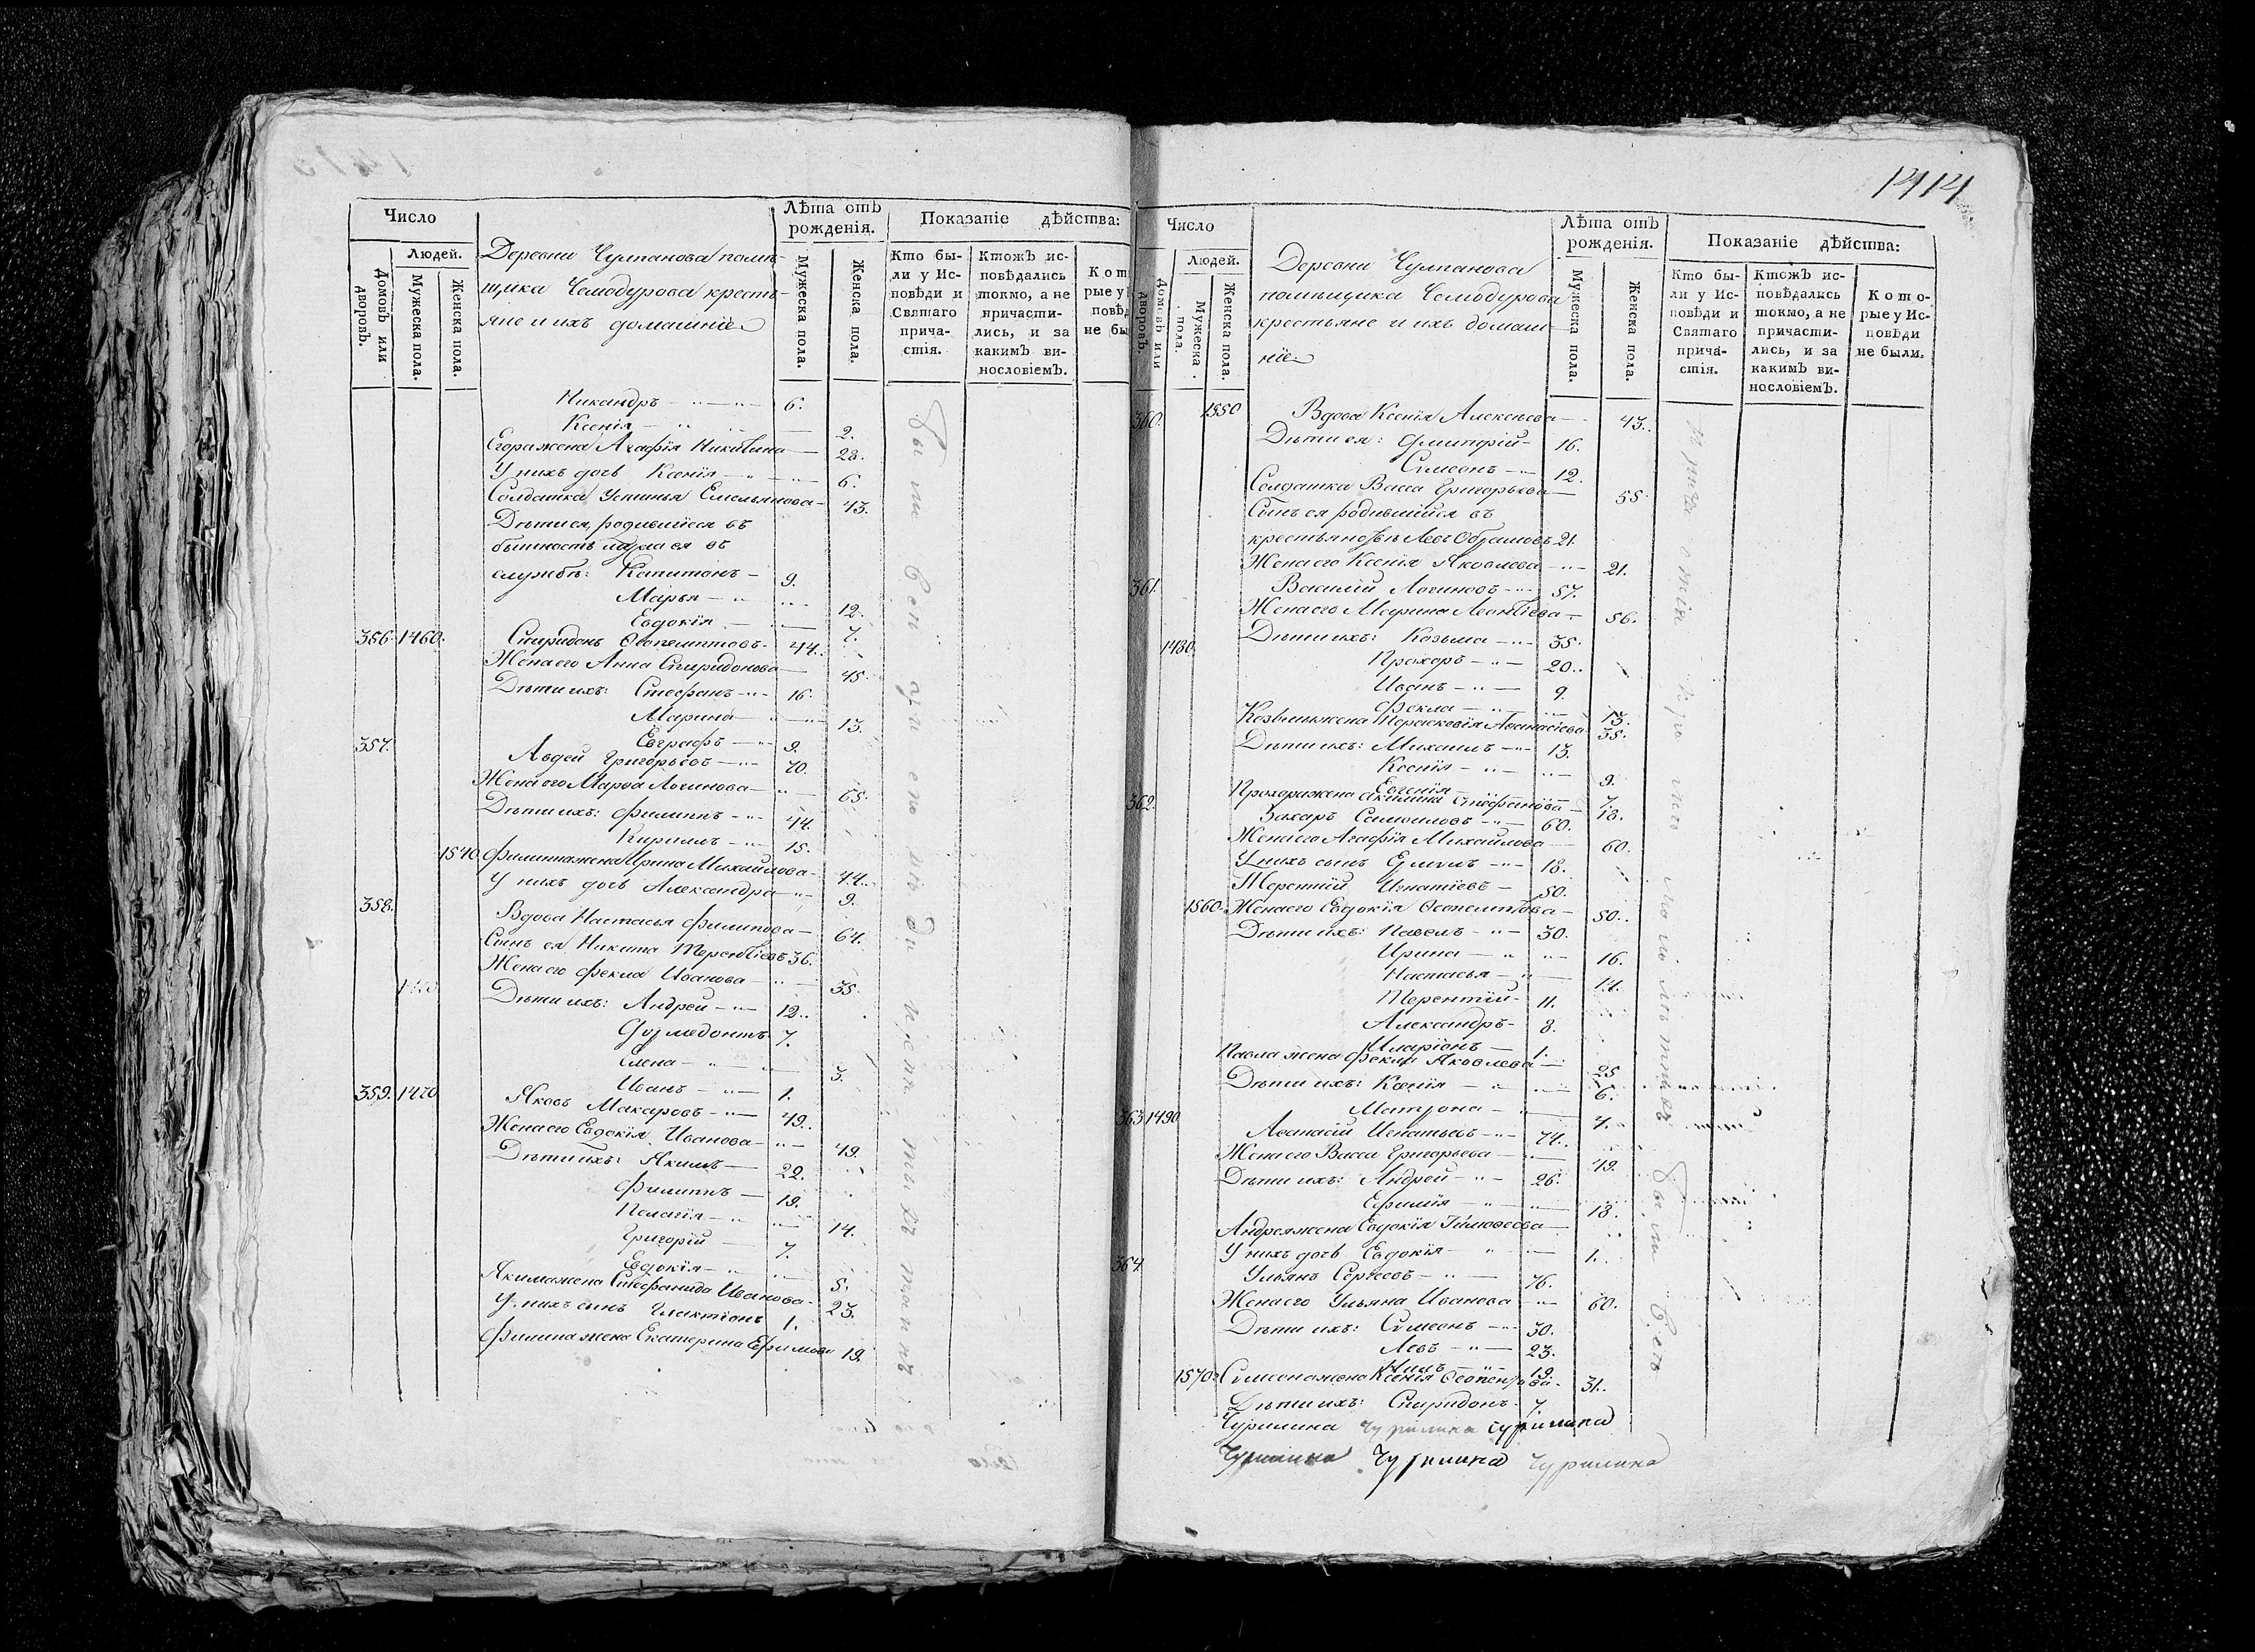 Число
Людей.
Домовъ или дворовъ.
Мужеска пола.
Женска пола.
Деревни Чулпанова помѣ-
щика Чемодурова кресть-
яне и ихъ домашніе
Лѣта отъ
рожденія.
Мужеска пола.
Женска пола.
Показаніе дѣйства:
Кто бы-
ли у Ис-
повѣди и
Святаго
прича-
стія.
Ктожъ ис-
повѣдались
токмо, а не
причасти-
лись, и за
какимъ ви-
нословіемъ.
Кот
рые у
повѣд
не бы
Никандръ 6.
Ксенія 2.
Егора жена Агафія Никитина 28.
У нихъ дочь Ксенія 6.
Солдатка Устинья Емельянова 43.
Дѣти ея, родившіеся въ
бытность мужа ея въ
службѣ: Капитонъ 9.
Марья 12.
Евдокія 7.
356 1460. Спиридонъ Ѳеопемптовъ 44.
Жена его Анна Спиридонова 45.
Дѣти ихъ: Стефанъ 16.
Марина 13.
Евграфъ 9.
357. Авдей Григорьевъ 70.
Жена его Марѳа Логинова 65.
Дѣти ихъ: Филиппъ 44.
Кириллъ 15.
1540. Филиппа жена Ирина Михайлова 44.
У нихъ дочь Александра 9.
358. Вдова Настасья Филипова 64.
Сынъ ея Никита Терентіевъ 36.
Жена его Фекла Иванова 35.
Дѣти ихъ: Андрей 12.
Дормедонтъ 7.
Елена 3.
Иванъ 1.
359. 1470 Яковъ Макаровъ 49.
Жена его Евдокія Иванова 49.
Дѣти ихъ: Якимъ 22.
Филиппъ 19.
Пелагія 14.
Григорій 7.
Евдокія 5.
Якима жена Стефанида Иванова 23.
У нихъ сынъ Галактіонъ 1.
Филипа жена Екатерина Ефимова 19.
1414
Число
Людей.
Домовъ или дворовъ.
Мужеска пола.
Женска пола.
Деревни Чулпанова
помѣщика Чемодурова
крестьяне и ихъ домаш-
ніе
Лѣта отъ
рожденія.
Мужеска пола.
Женска пола.
Показаніе дѣйства:
Кто бы-
ли у Ис-
повѣди и
Святаго
прича-
стія.
Ктожъ ис-
повѣдались
токмо, а не
причасти-
лись, и за
какимъ ви-
нословіемъ.
Кото-
рые у Ис-
повѣди
не были.
360. 1550 Вдова Ксенія Алексѣева 43.
Дѣти ея: Димитрій 16.
Симеонъ 12.
Солдатка Васса Григорьева 55.
Сынъ ея родившійся въ
крестьянствѣ Левъ 21.
Жена его Ксенія Яковлева 21.
361. Василій Логиновъ 57.
Жена его Марина Леонтіева 56.
1480. Дѣти ихъ: Козьма 35.
Прохоръ 20.
Иванъ 9.
Фекла 13.
Козьмы жена Парасковія Аѳанасіева 35.
Дѣти ихъ: Михаилъ 13.
Ксенія 9.
Евгенія 7.
Прохора жена Акилина Стефанова 18.
362. Захаръ Самоиловъ 60.
Жена его Агафія Михайлова 60.
У нихъ сынъ 18.
Терентій Игнатіевъ 50.
1560. Жена его Евдокія Ѳеопемптова 50.
Дѣти ихъ: Павелъ 30.
Ирина 16.
Настасья 14.
Терентій 11.
Александръ 8.
Иларіонъ 1.
Павла жена Фекла Яковлева 25
Дѣти ихъ: Ксенія 6.
Матрона 4.
363 1490 Аѳанасій Игнатьевъ 74.
Жена его Васса Григорьева 49.
Дѣти ихъ: Андрей 26.
Ефимія 18.
Андрея жена Евдокія Тимоѳеева
У нихъ дочь Евдокія 1.
364. Ульянъ Сергѣевъ 76.
Жена его Ульяна Иванова 60.
Дѣти ихъ: Симеонъ 30.
Левъ 23.
Нилъ 19.
1570. Симеона жена Ксенія 31.
Дѣти ихъ: Спиридонъ 7.
Чурилина Чурилина Чурилина
Чурилина Чурилина Чурилина